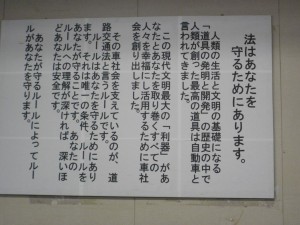 法はあなたを
守るためにあります。
人類の生活と文明の基礎になる
「道具の発明と開発」の歴史の中で
人類が創った最高の道具は自動車と
言われてきました。
この現代文明最大の「利器」があ
なたとあなたを取り巻くすべての
人々を幸福に活用するために車社
会を創り出しました。
その車社会を支えているのが、道
路交通法と言うルールです。
ルールはあなたを守るためにあり
ます。それは唯一の条件、ルールを
あなたが守ることです。あなたの
ルールの理解が深ければ、深いほ
どあなたは安全です。
あなたが守るルールによってルー
ルがあなたを守ります。